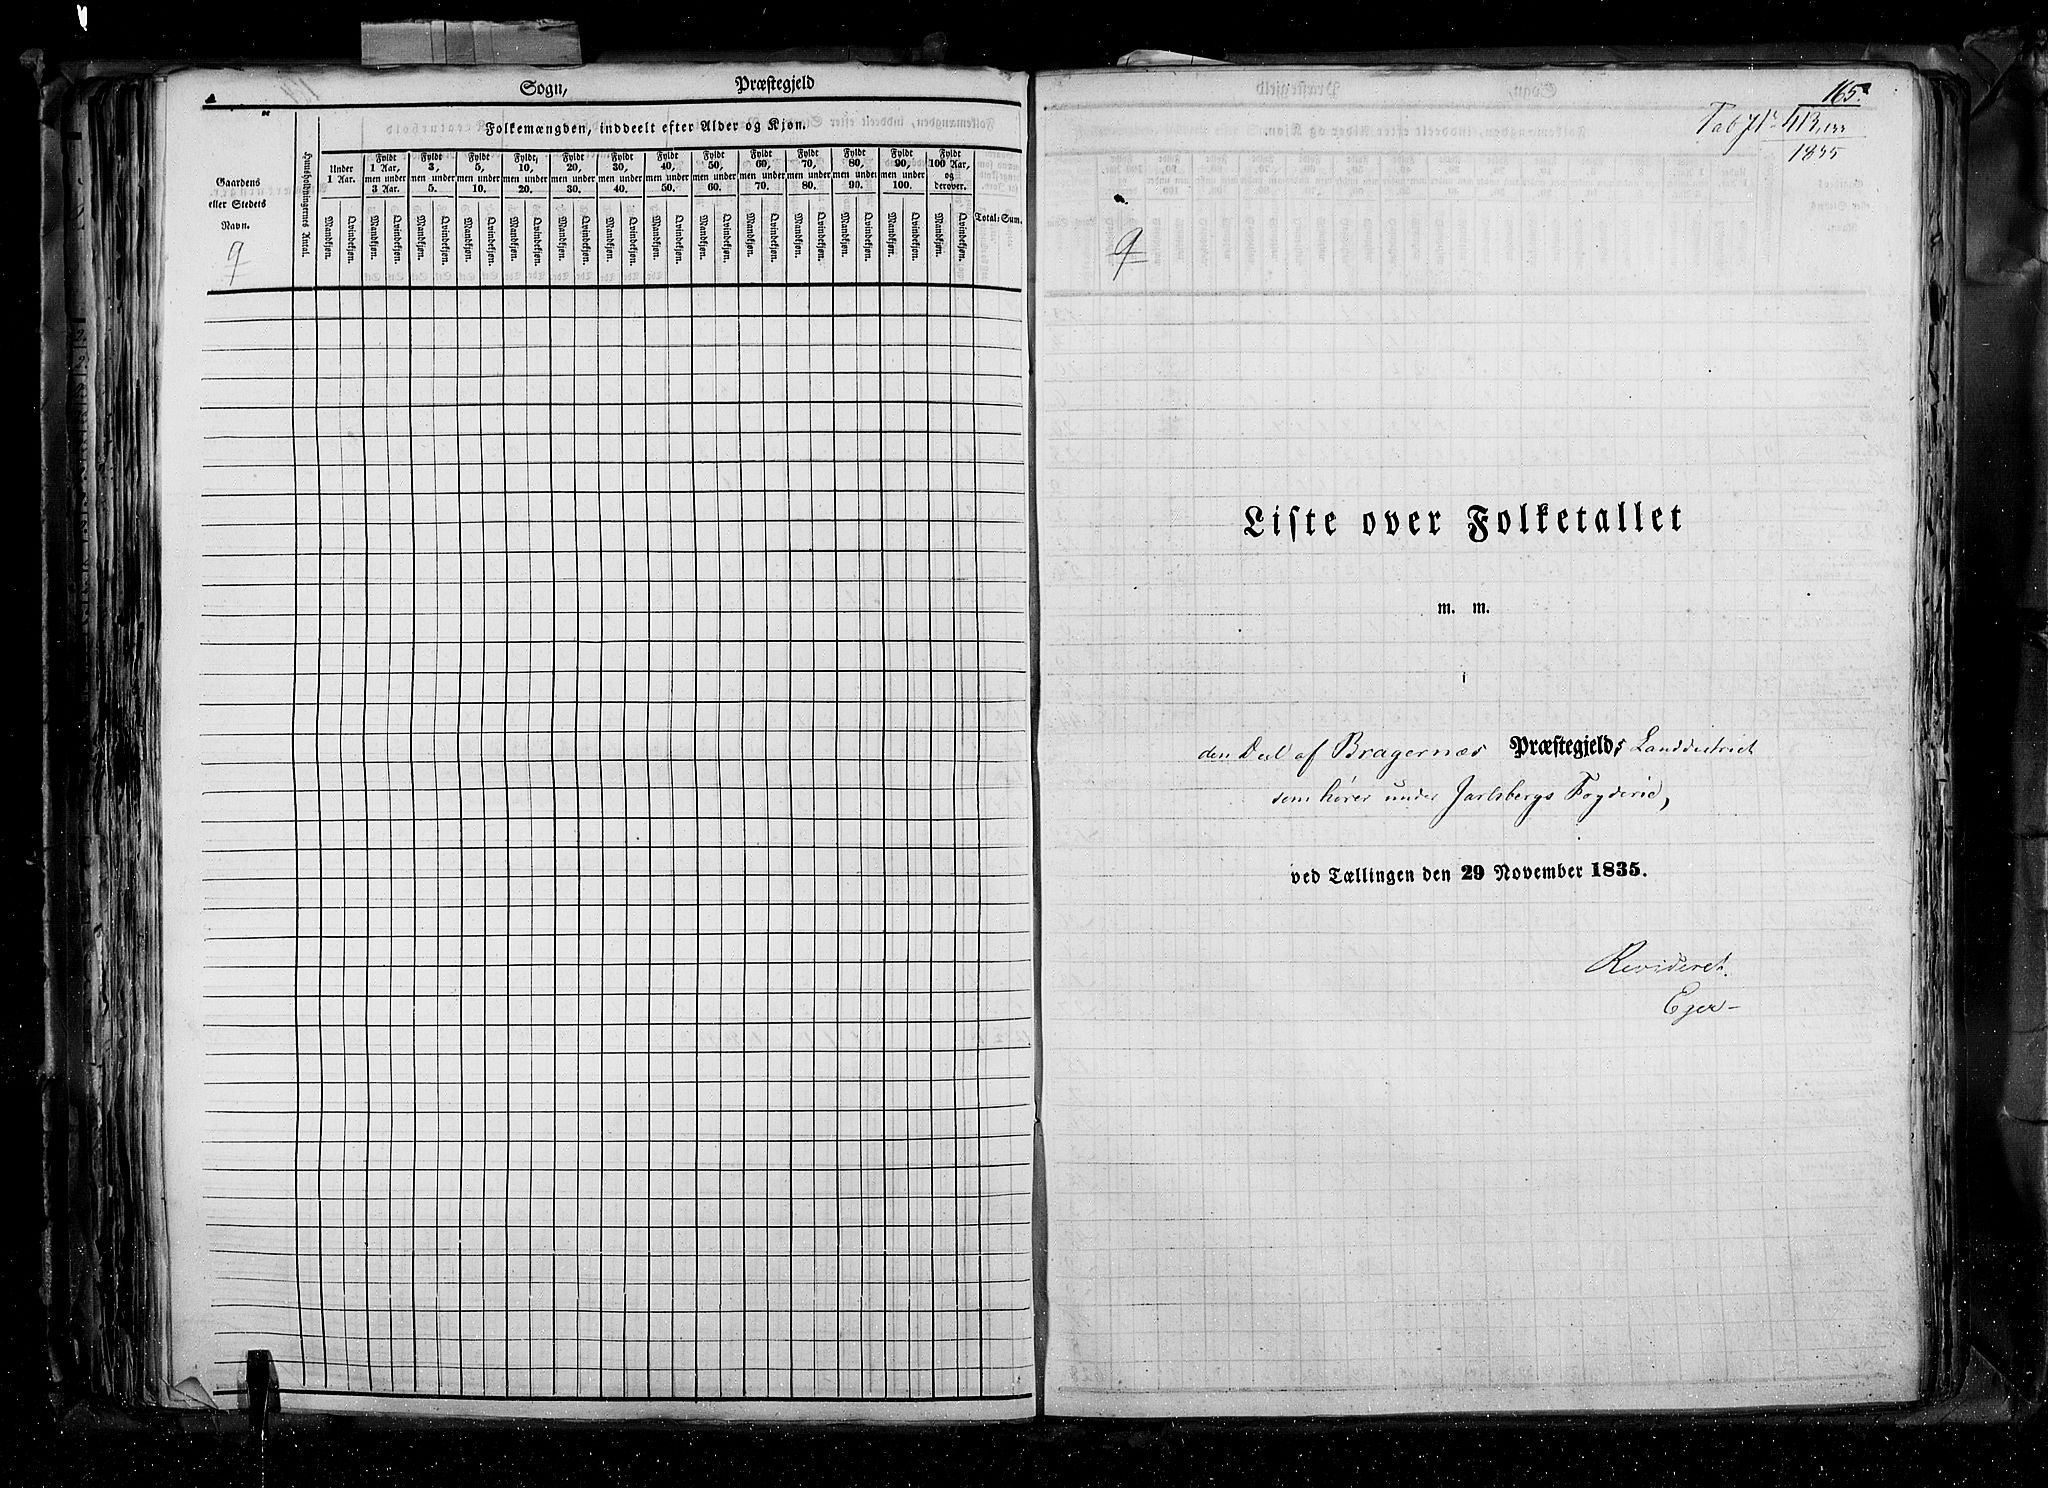 Sogn, Præstegjeld
Folkemængden, inddeelt efter Alder og Kjøn.
Gaardens
eller Stedets
Navn.
Huusholdningernes Antal.
Under
1 Aar.
Fyldt
1 Aar,
men under
3 Aar.
Fyldt
3,
men under
5.
Fyldt
5,
men under
10.
Fyldt
10,
men under
20.
Fyldt
20,
men under
30.
Fyldt
30,
men under
40.
Fyldt
40,
men under
50.
Fyldt
50,
men under
60.
Fyldt
60,
men under
70.
Fyldt
70,
men under
80.
Fyldt
80,
men under
90.
Fyldt
90,
men under
100.
Fyldt
100 Aar,
og
derover.
Mandkjøn. Qvindekjøn. Mandkjøn. Qvindekjøn. Mandkjøn. Qvindekjøn. Mandkjøn. Qvindekjøn. Mandkjøn. Qvindekjøn. Mandkjøn. Qvindekjøn. Mandkjøn. Qvindekjøn. Mandkjøn. Qvindekjøn. Mandkjøn. Qvindekjøn. Mandkjøn. Qvindekjøn. Mandkjøn. Qvindekjøn. Mandkjøn. Qvindekjøn. Mandkjøn. Qvindekjøn. Mandkjøn. Qvindekjøn.
Total-Sum.
9
165.
1835
9
Liste over Folketallet
m. m.
i
den Deel af Bragernæs Præstegjelds Landdistrict
som hører under Jarlsbergs Fogderie,
ved Tællingen den 29 November 1835.
Revideret.
Eger